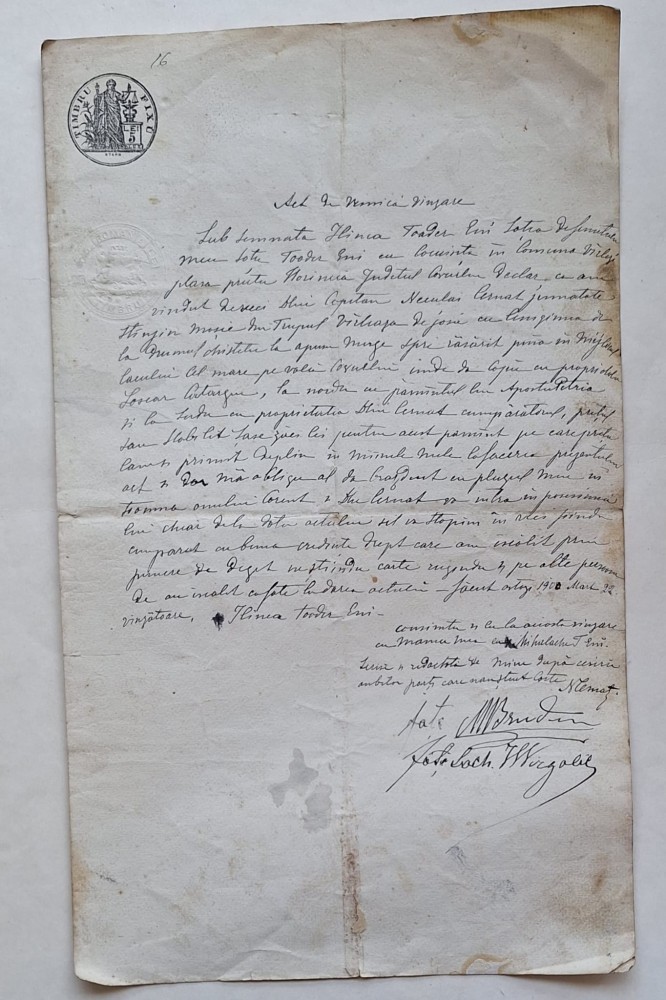 16
TIMBRU FIXU
LEI
5
Act de vecinică vinzare
Sub semnata Ilinca Toader Eni Soția defunctului
meu Soțu Toader Eni cu locuința în Comuna Vîrlezi
plasa prutu Horincea Județul Covurlui Declar, ca am
vindut deveci Dlui Capitan Neculai Cernat jumatate
Stinjin Moșie din Trupul Vîrleaza de josu cu lungimea de
la Drumul la apusu merge spre răsărit pina în Mijlocul
lacului cel mare pe valea unde da Capu cu proprietatea
la nordu cu pămîntul lui Apostu Petria
și la Sudu cu proprietatea Dlui Cernat cumpărătorul, prețul
sau Stabilit Sase zeci lei pentru acest pamînt pe care prețu
l'am primit deplin în minele mele la facerea prezentului
act și mă obligu al da cu plugul meu în
toamna anului Corent și Dlu Cernat va intra in posesiunea
lui chiar dela data actului sel va Stapini în veci fiindu
cumparat cu buna credința drept care am iscălit prin
punere de deget neștiindu carte rugindu și pe alte persoane
de au iscalit ca fate la darea actului – făcut astazi 1900 Mart 22
vinzătoare, Ilinca Toader Eni –
consimtu și eu la aceasta vinzare
cu Mama mea Mihalache T Eni.
Scris și redactata de mine după cererea
ambilor parți care nau știut Carte NCernat
fața
fața